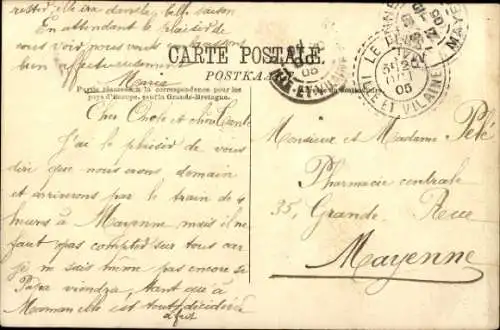 restée, elle ira dans la belle saison
En attendant le plaisir de
vous voir nous vous embrassons
bien affectueusement
Marie
CARTE POSTALE
POSTKAART
Partie réservée à la correspondance pour les
pays d'Europe, sauf la Grande-Bretagne.
LE PENNE
ILLE ET VILAINE
05
MAYENNE
05
Cher Oncle et chère Tante
J'ai le plaisir de vous
dire que nous irons demain
et arriverons par le train de 4
heures à Mayenne mais il ne
faut pas compter sur tous car
je ne sais même pas encore si
Papa viendra, tant qu'à
Maman elle est tout décidée
Monsieur et Madame Pelé
Pharmacie centrale
35, Grande Rue
Mayenne